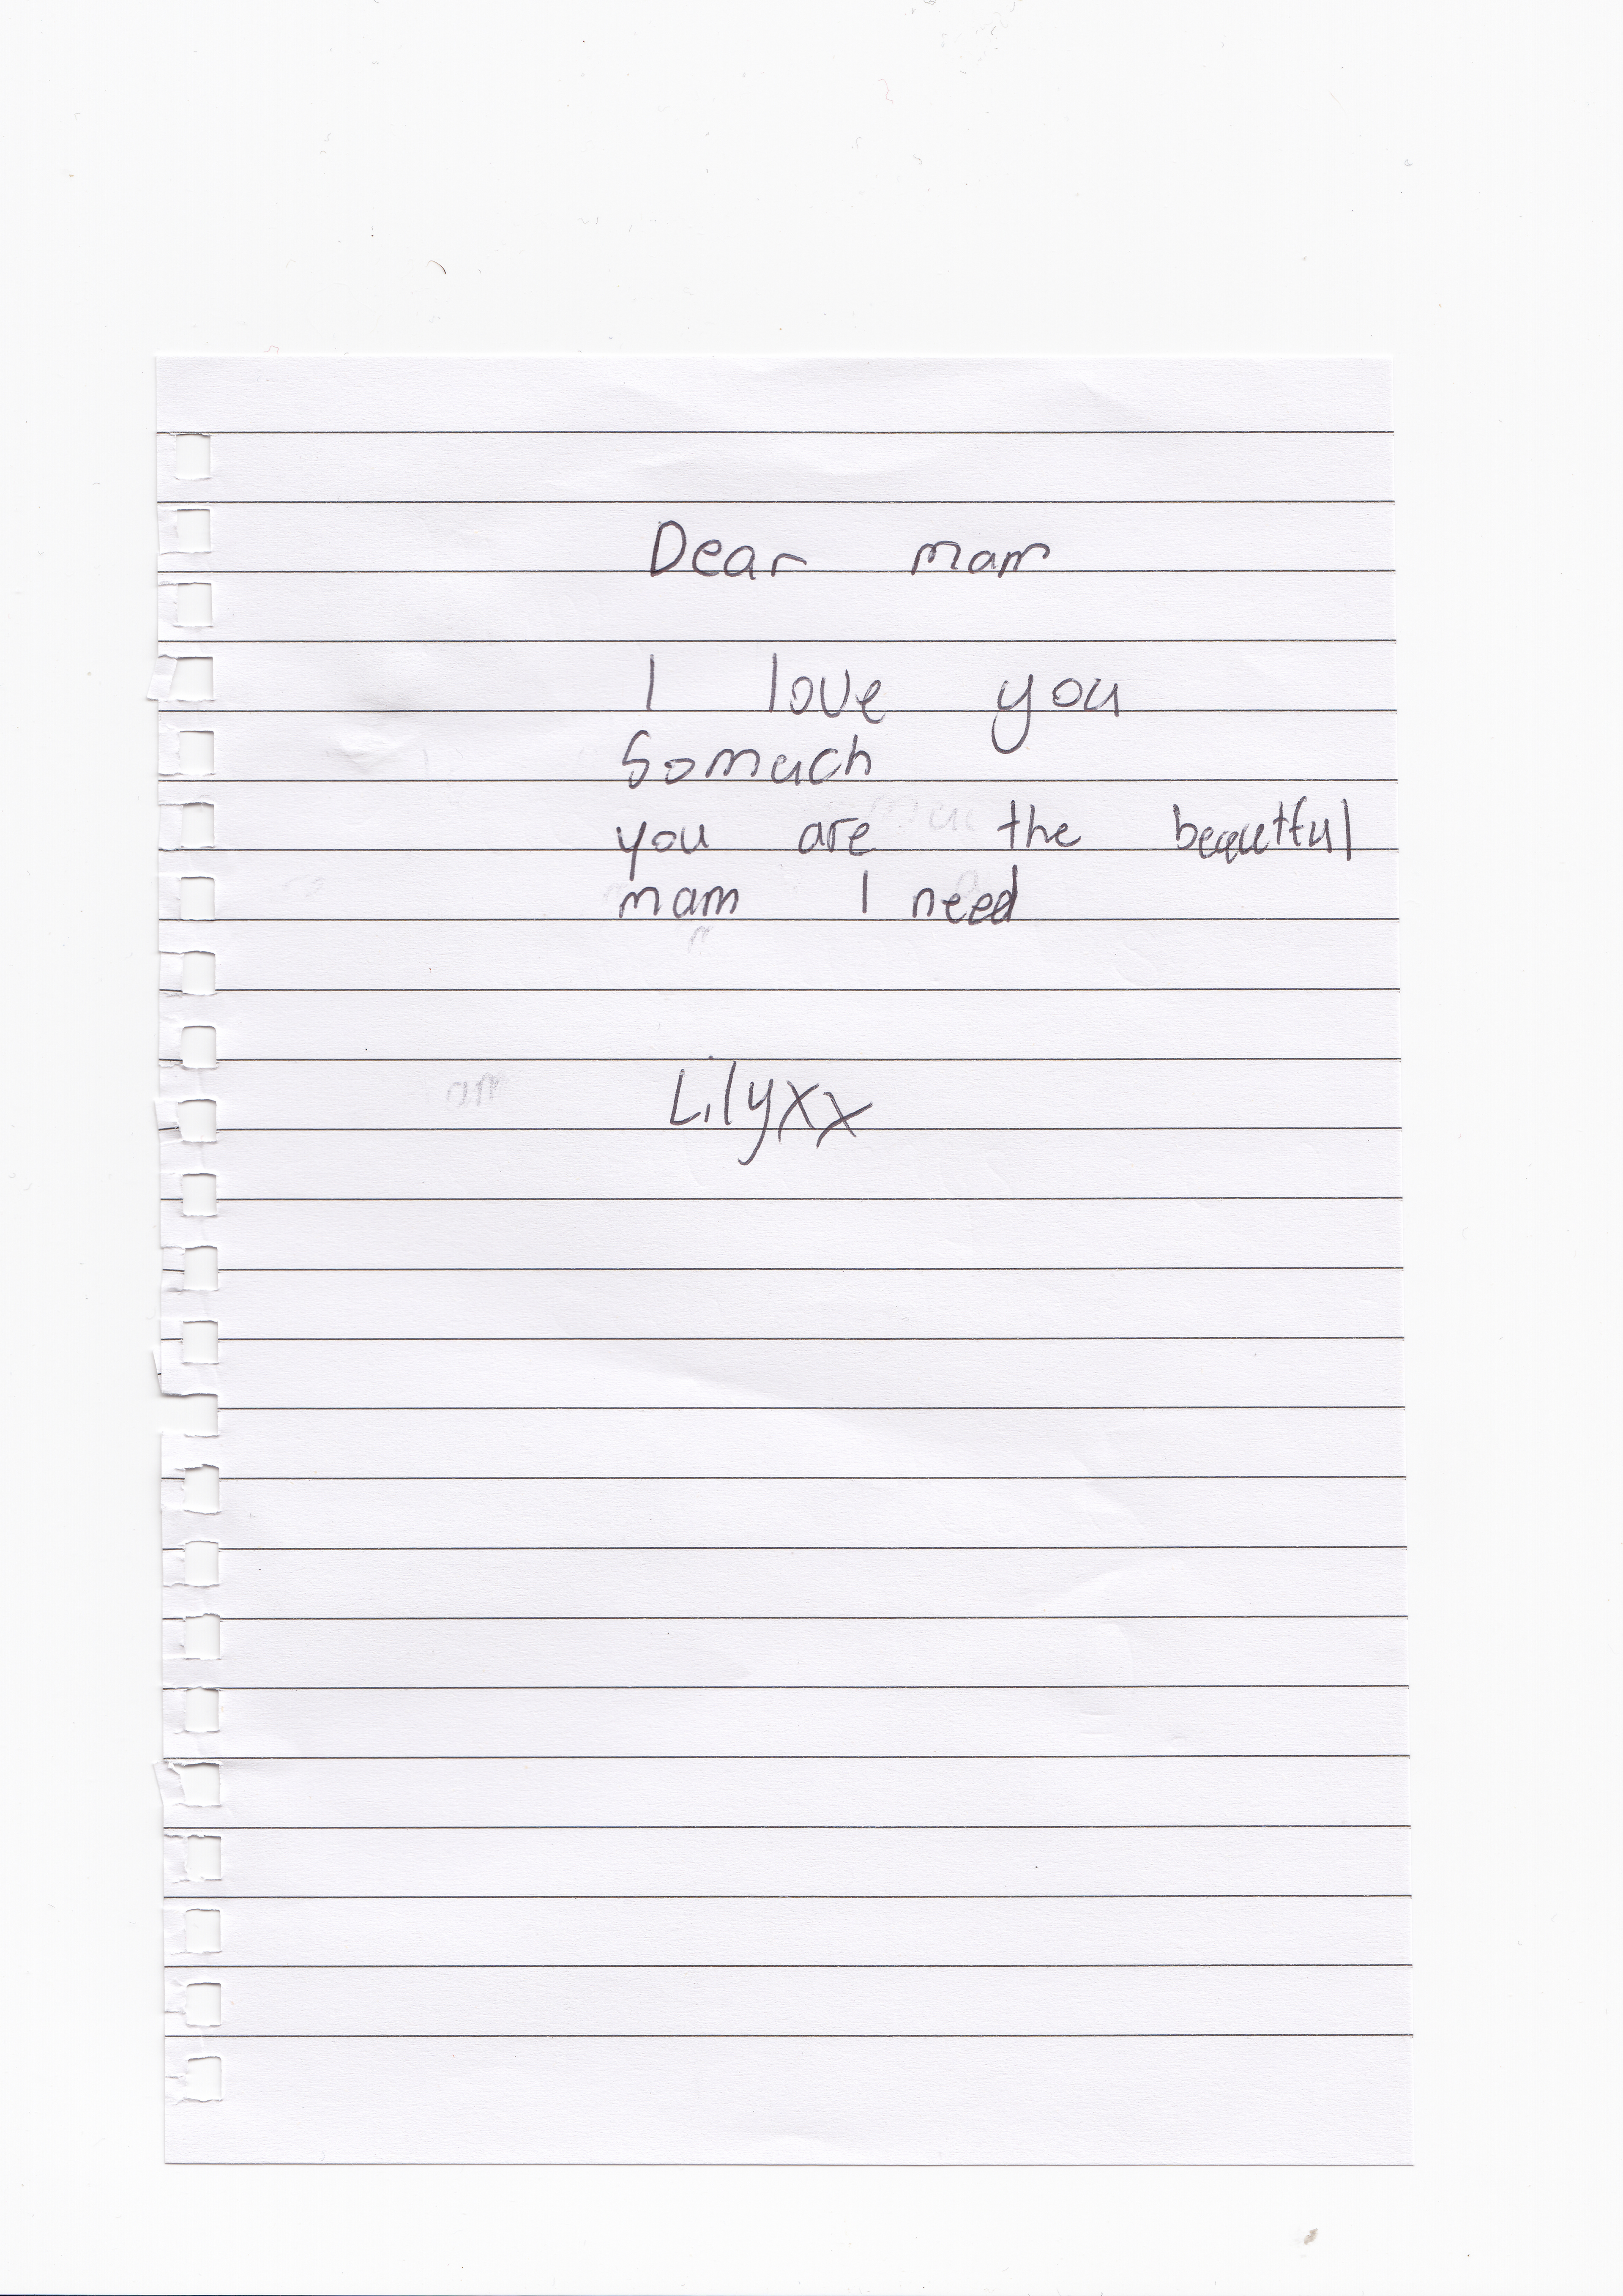 Dear mam
I love you
Somuch
you are the beautful
mam I need
Lilyxx